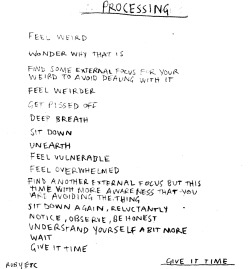 PROCESSING
FEEL WEIRD
WONDER WHY THAT IS
FIND SOME EXTERNAL FOCUS FOR YOUR
WEIRD TO AVOID DEALING WITH IT
FEEL WEIRDER
GET PISSED OFF
DEEP BREATH
SIT DOWN
UNEARTH
FEEL VULNERABLE
FEEL OVERWHELMED
FIND ANOTHER EXTERNAL FOCUS BUT THIS
TIME WITH MORE AWARENESS THAT YOU
ARE AVOIDING THE THING
SIT DOWN AGAIN, RELUCTANTLY
NOTICE, OBSERVE, BE HONEST
UNDERSTAND YOURSELF A BIT MORE
WAIT
GIVE IT TIME
RUBYETC GIVE IT TIME